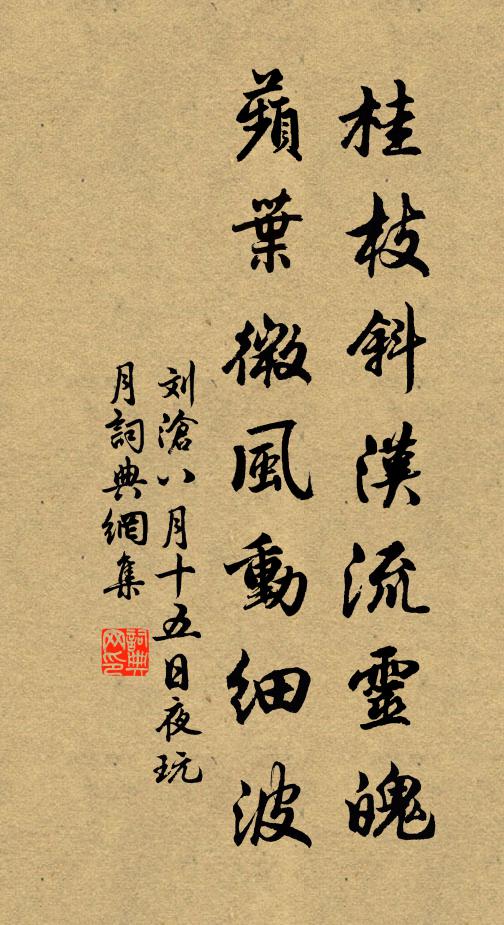 桂枝斜漢流靈魄
蘋葉微風動細波
刘滄八月十五日夜玩
月詞典網集
詞典
网印